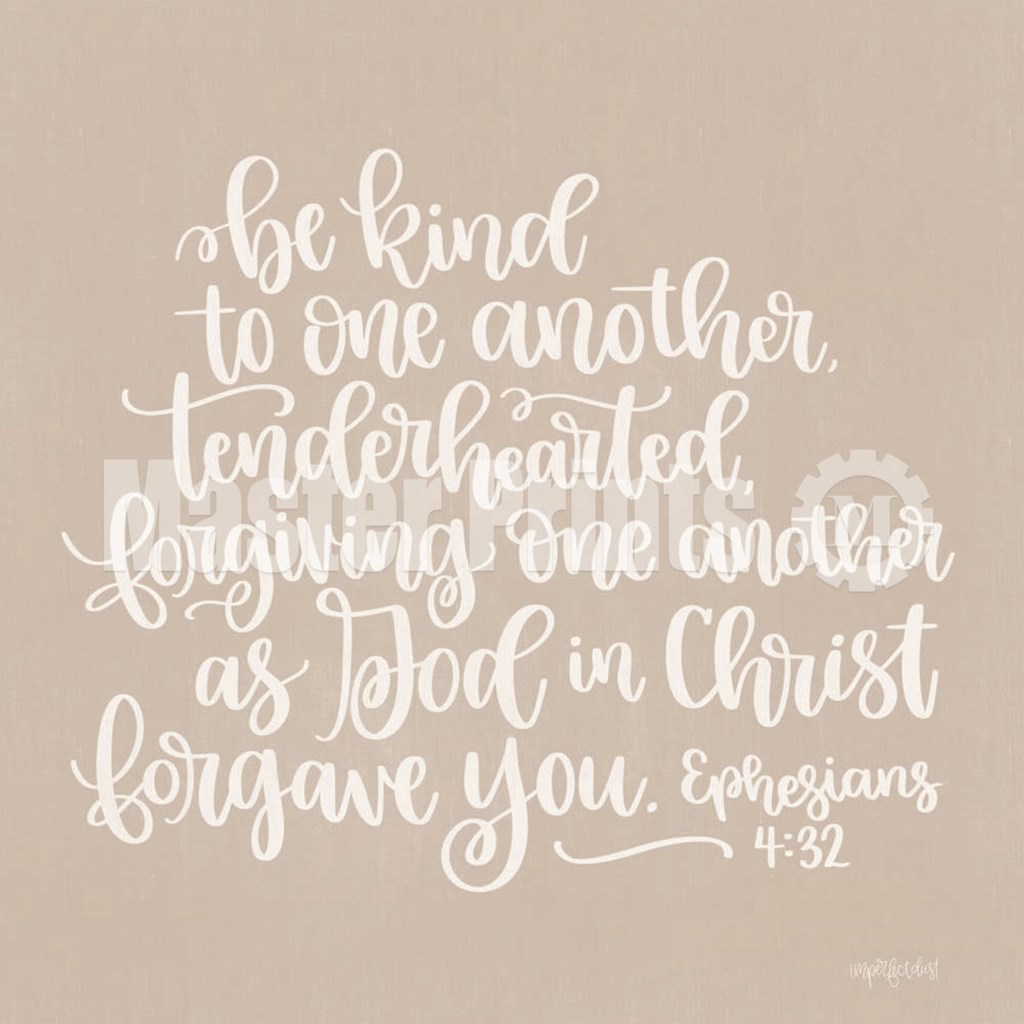 be kind
to one another,
tenderhearted,
forgiving one another
as God in Christ
forgave you. Ephesians
4:32
Master Prints M
imperfectdust